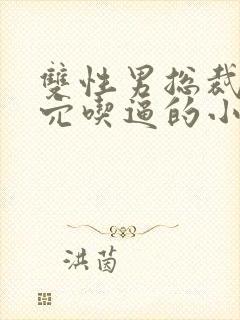 雙性男總裁
穴喫逼的小
洪茵